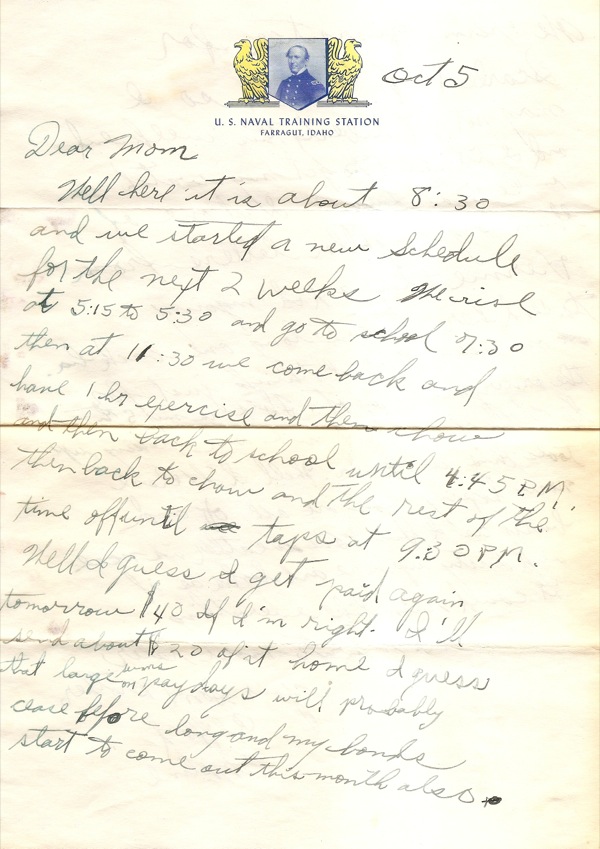 Oct 5
U. S. NAVAL TRAINING STATION
FARRAGUT, IDAHO
Dear Mom
Well here it is about 8:30
and we started a new Schedule
for the next 2 weeks We rise
at 5:15 to 5:30 and go to school 7:30
then at 11:30 we come back and
have 1 hr exercise and then chow
and then back to school until 4:45 PM.
then back to chow and the rest of the
time off until taps at 9:30 PM.
Well I guess I get paid again
tomorrow $40 If I'm right. I'll
send about $20 of it home I guess
that large sums on paydays will probably
cease before long and my bonds
start to come out this month also